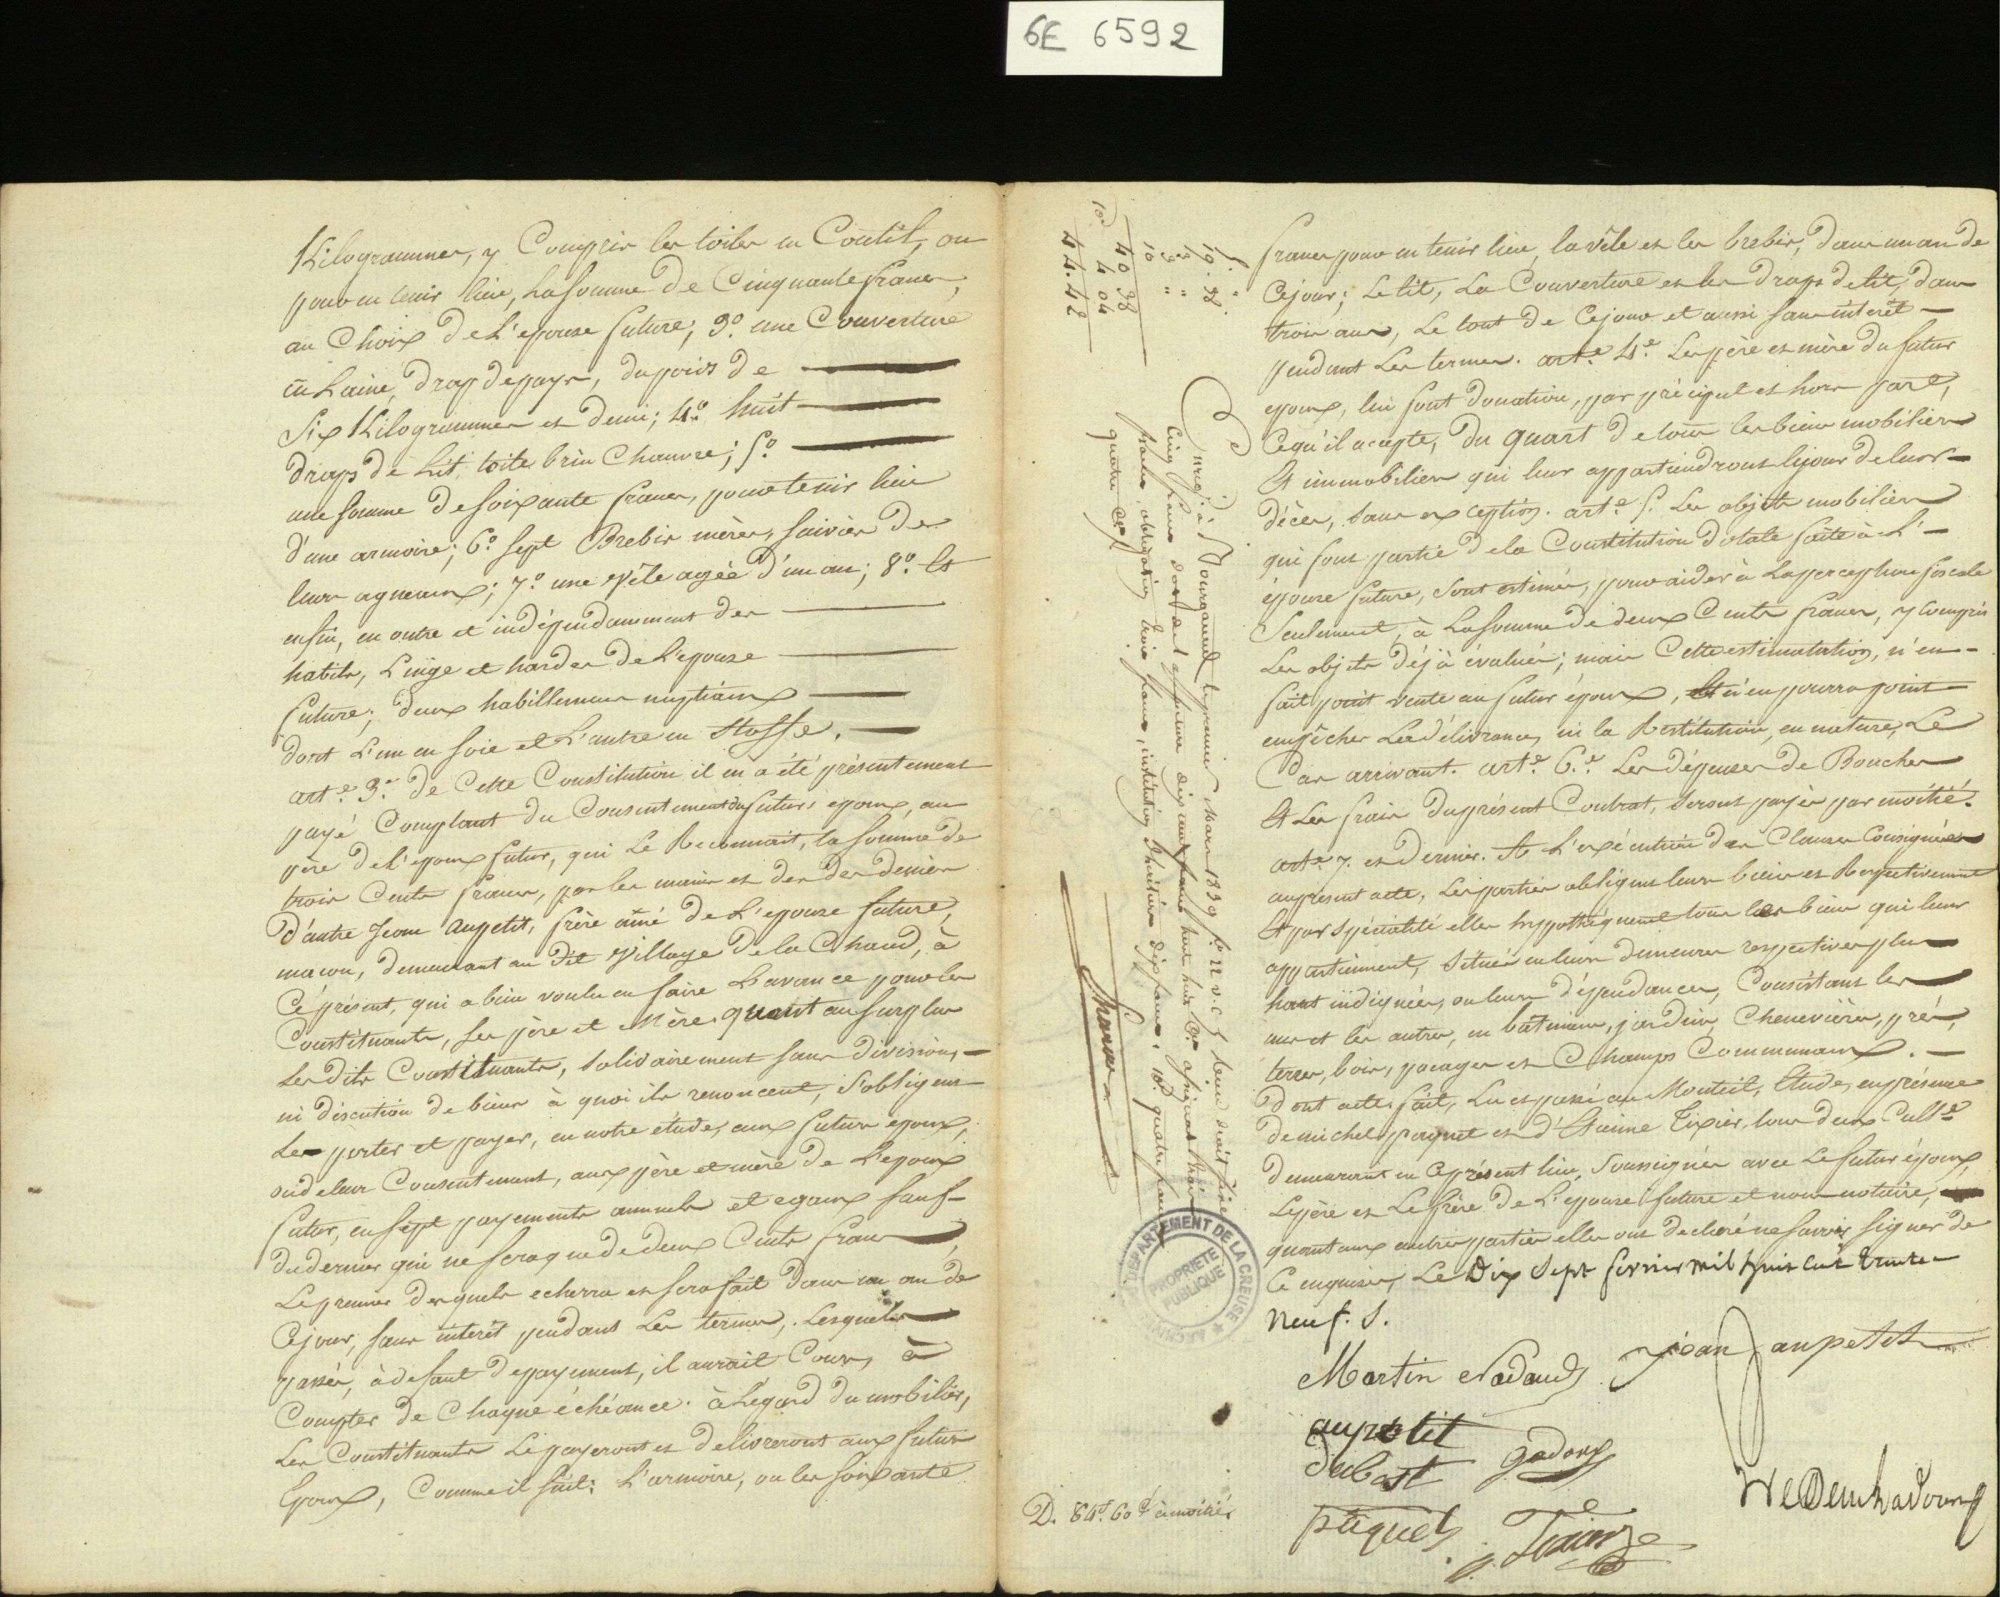 6E 6592
Kilogrammes, y Compris les toiles en Coutil, ou
pour en tenir lieu, la somme de Cinquante francs,
au Choix de L'epouse future; 3.º une Couverture
en Laine, drap de pays, du poids de
Six Kilogrammes et demi; 4.º huit
draps de Lit, toile brin Chanvre; 5.º
une somme de soixante francs, pour tenir lieu
d'une armoire; 6.º sept Brebis mères, suivies de
leurs agneaux; 7.º une vêle agée d'un an; 8.º Et
enfin, en outre et indépendamment des
habits, Linge et hardes de L'epouse
future, deux habillemens nuptiaux
dont L'un en soie et L'autre en Etoffe.
art.e 3.e de Cette Constitution il en a été présentement
payé Comptant du Consentement du futur époux, au
père de L'epoux futur, qui Le Reconnait, la somme de
trois Cents francs, par les mains et des deniers
d'autre Jean Aupetit, frère aîné de L'epouse future,
maçon, demeurant au dit Village de la Chaud, à
Ce présent, qui a bien voulu en faire L'avance pour les
Constituants, ses père et Mère. quant au surplus
Les dits Constituants, solidairement sans division,
ni discution de biens à quoi ils renoncent, s'obligent
Le porter et payer, en notre étude, aux futurs époux,
ou de leur Consentement, aux père et mère de L'epoux
futur, en sept payements annuels et egaux sauf
du dernier qui ne sera que de deux Cents francs,
Le premier desquels echerra et sera fait dans un an de
Ce jour, sans intérêt pendant Les termes, Lesquels
passés, à défaut de payement, il aurait Cours, à
Compter de Chaque échéance. à L'égard du mobilier,
Les Constituants Le payeront et delivreront aux futurs
Epoux, Comme il suit: L'armoire, ou les soixante
francs pour en tenir lieu, la vêle et les brebis, dans un an de
Ce jour; Le lit, La Couverture et les draps de lit, dans
trois ans, Le tout de Ce jour et aussi sans intérêt
pendant Les termes. art.e 4.e Les père et mère du futur
epoux, lui font donation, par précipul et hors part,
Ce qu'il accepte, du quart de tous les biens mobiliers
Et immobiliers qui leur appartiendront le jour de leur
décès, sans exception. art.e 5. Les objets mobiliers
qui font partie de la Constitution dotale faite à L'
épouse future, sont estimés, pour aider à La perception fiscale
Seulement, à La somme de deux Cents francs, y Compris
Les objets déjà évalués; mais Cette estimatation, n'en
fait point vente au futur époux, Et n'en pourra point
empêcher Les délivrances ni la Restitution, en nature, Le
Cas arrivant. art.e 6.e Les dépenses de Bouches
Et Les frais du présent Contrat, seront payés par moitié.
art.e 7. et Dernier. A L'exécution des Clauses Consignées
au présent acte, Les parties obligent leurs biens et Respectivement
Et par spécialité elles hypothéquent tous les biens qui leur
appartiennent, situés en leurs demeures respectives plus
haut indiquées, ou leurs dépendances, Consistant les
uns et les autres, en bâtimens, jardin, Chenevières, prés,
terres, bois, pacages et Champs Communaux.
Dont acte, fait, Lu et passé au Monteil, Etude, en présence
de michel paquet et d'Etienne Tixier, tous deux Cult.rs
demeurant en Ce présent lieu, Soussignés avec Le futur époux,
Le père et Le frère de L'epouse future et nous notaire,
quant aux autres parties elles ont déclaré ne savoir signer de
Ce enquises, Le Dix Sept fevrier mil huit cent trente
neuf. S.
Martin Nadaud
Jean Jaupetit
aupetit
dubost
gadoux
paquet
Tixier
D. 64.f 60.c à moitié
19. 98
10
40 38
4 04
44. 42
Enreg. à Bourganeuf le premier Mars 1839 f.º 22 v. C. 5
quatre cs
ARCHIVES DEPARTEMENT DE LA CREUSE
PROPRIETE PUBLIQUE